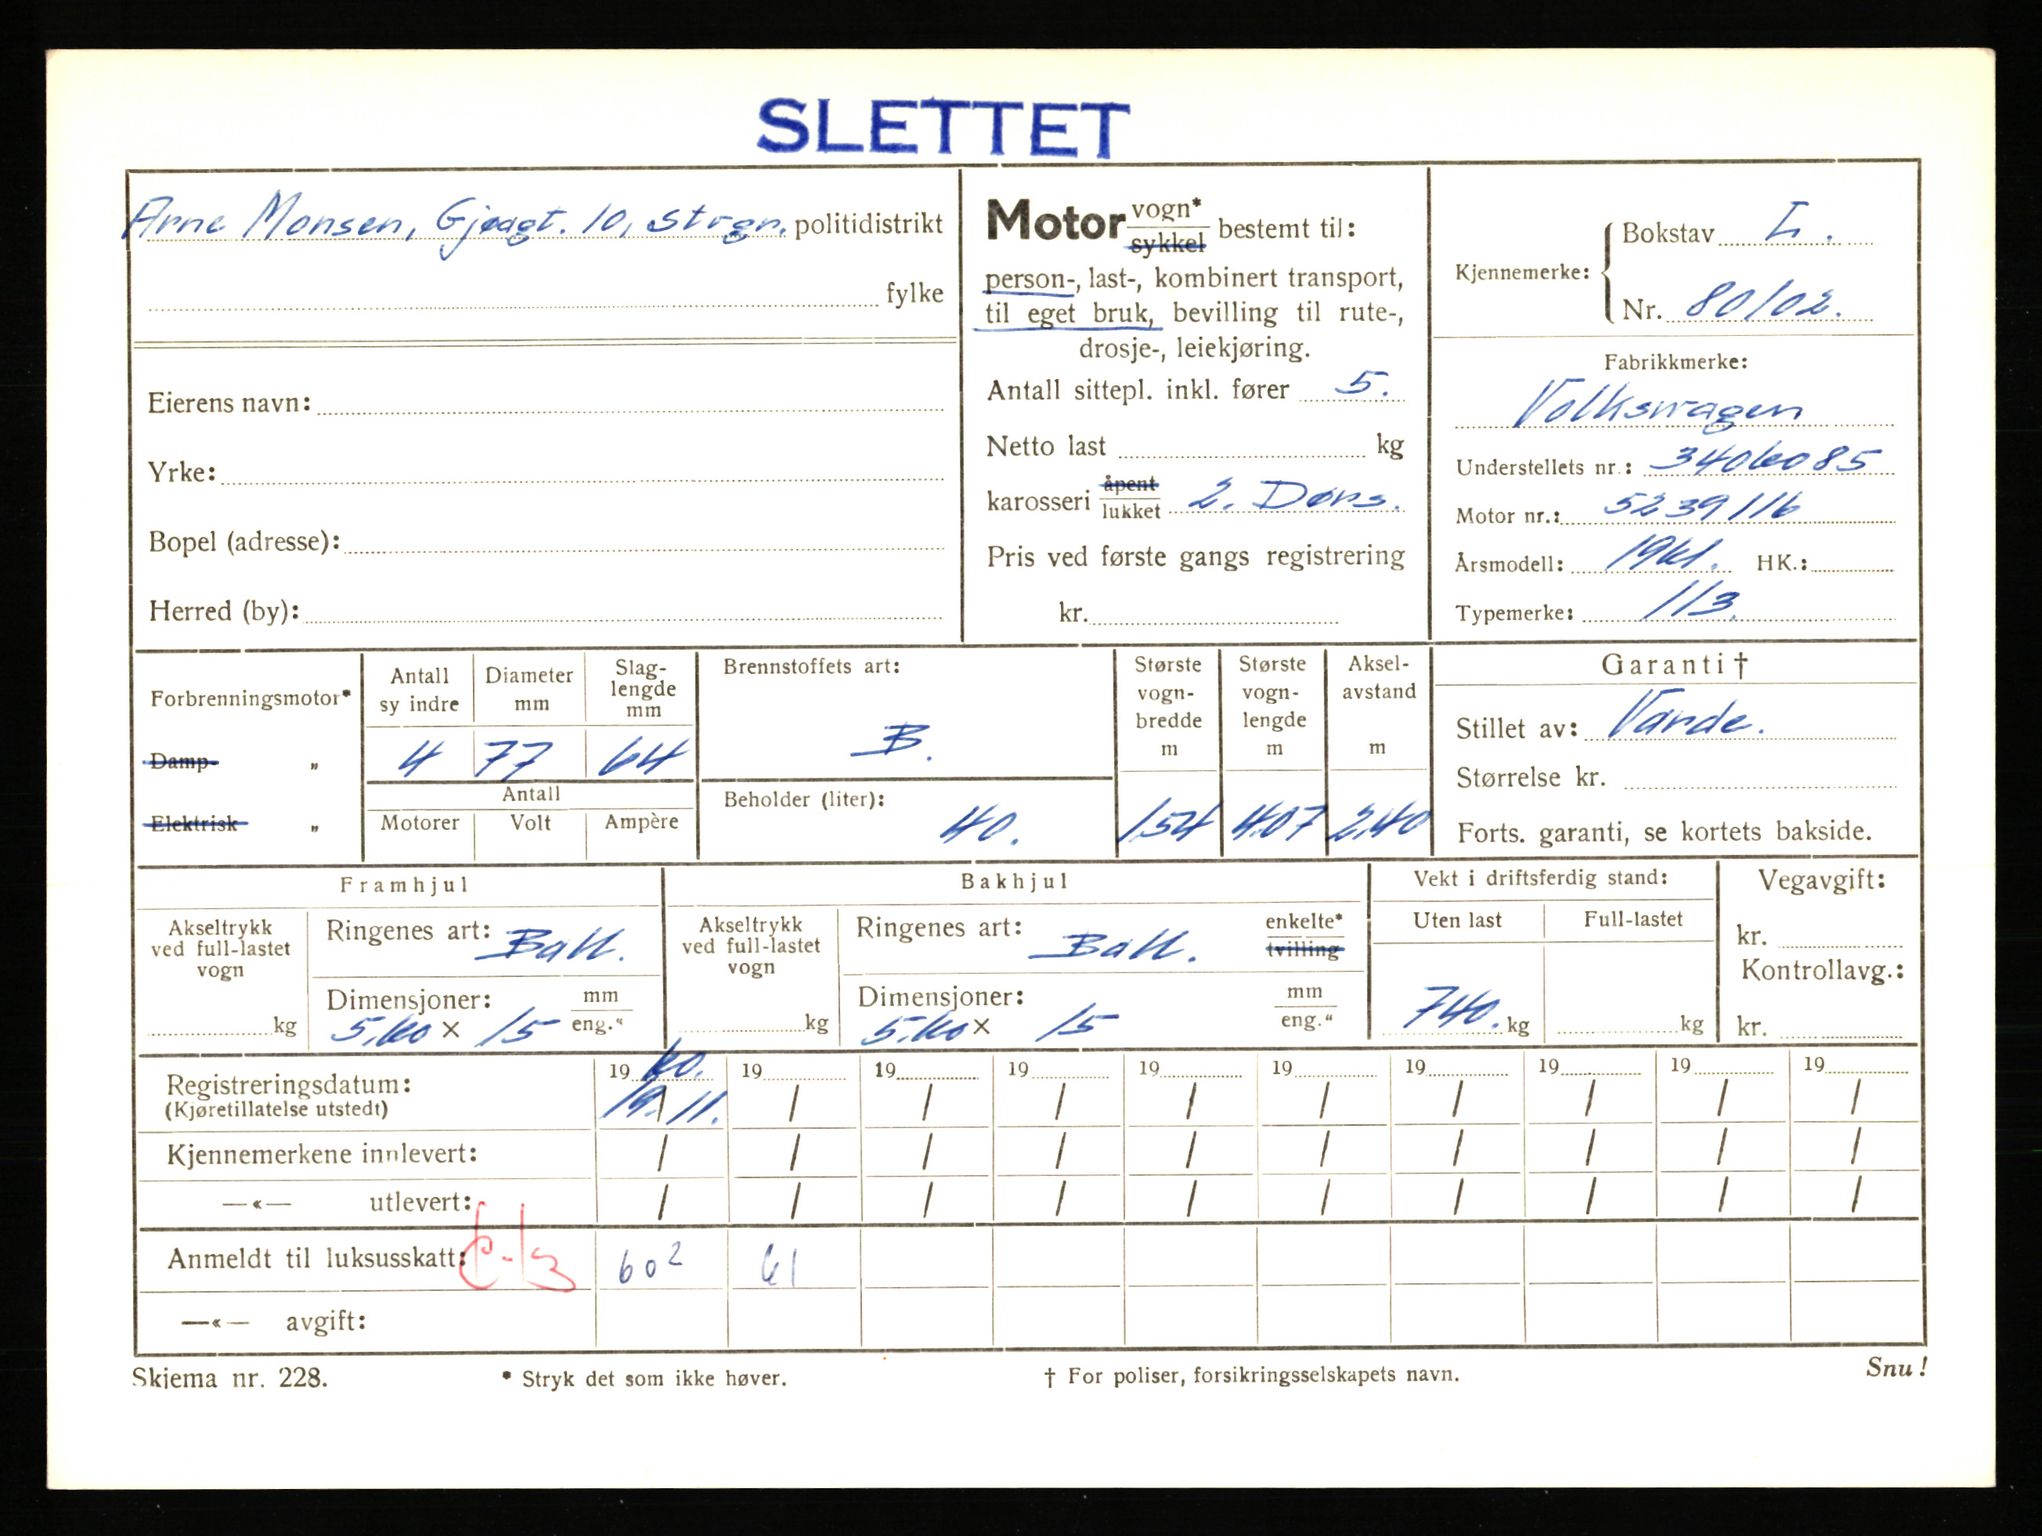 SLETTET
Arne Monsen, Gjøagt. 10, strgn. politidistrikt
fylke
Eierens navn:
Yrke:
Bopel (adresse):
Herred (by):
Motor vogn* sykkel bestemt til:
person-, last-, kombinert transport,
til eget bruk, bevilling til rute-,
drosje-, leiekjøring.
Antall sittepl. inkl. fører 5.
Netto last kg
karosseri åpent lukket 2. Dørs.
Pris ved første gangs registrering
kr.
Kjennemerke:
Bokstav L.
Nr. 80102.
Fabrikkmerke:
Volkswagen
Understellets nr.: 3406085
Motor nr.: 5239116
Årsmodell: 1961. HK.:
Typemerke: 113.
Forbrenningsmotor*
Damp- „
Elektrisk „
Antall sy indre
Diameter mm
Slag-
lengde
mm
4 77 64
Antall
Motorer Volt Ampère
Brennstoffets art:
B.
Beholder (liter):
40.
Største
vogn-
bredde
m
1.54
Største
vogn-
lengde
m
4.07
Aksel-
avstand
m
2.40
Garanti †
Stillet av: Varde.
Størrelse kr.
Forts. garanti, se kortets bakside.
Framhjul
Akseltrykk
ved full-lastet
vogn
kg
Ringenes art: Ball.
Dimensjoner: mm
5.60 x 15 eng."
Bakhjul
Akseltrykk
ved full-lastet
vogn
kg
Ringenes art: Ball. enkelte*
tvilling
Dimensjoner: mm
5.60 x 15 eng."
Vekt i driftsferdig stand:
Uten last Full-lastet
740. kg kg
Vegavgift:
kr.
Kontrollavg.:
kr.
Registreringsdatum: 1960. 19 19 19 19 19 19 19 19 19
(Kjøretillatelse utstedt) 19/11. / / / / / / / / /
Kjennemerkene innlevert: / / / / / / / / / /
—«— utlevert: / / / / / / / / / /
Anmeldt til luksusskatt: 60² 61
—«— avgift:
Skjema nr. 228. * Stryk det som ikke høver. † For poliser, forsikringsselskapets navn. Snu!